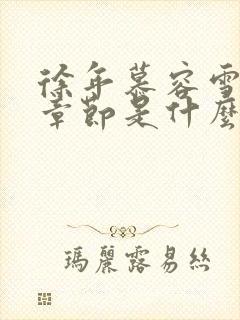 徐年慕容雪
章節是什麼
瑪麗露易絲